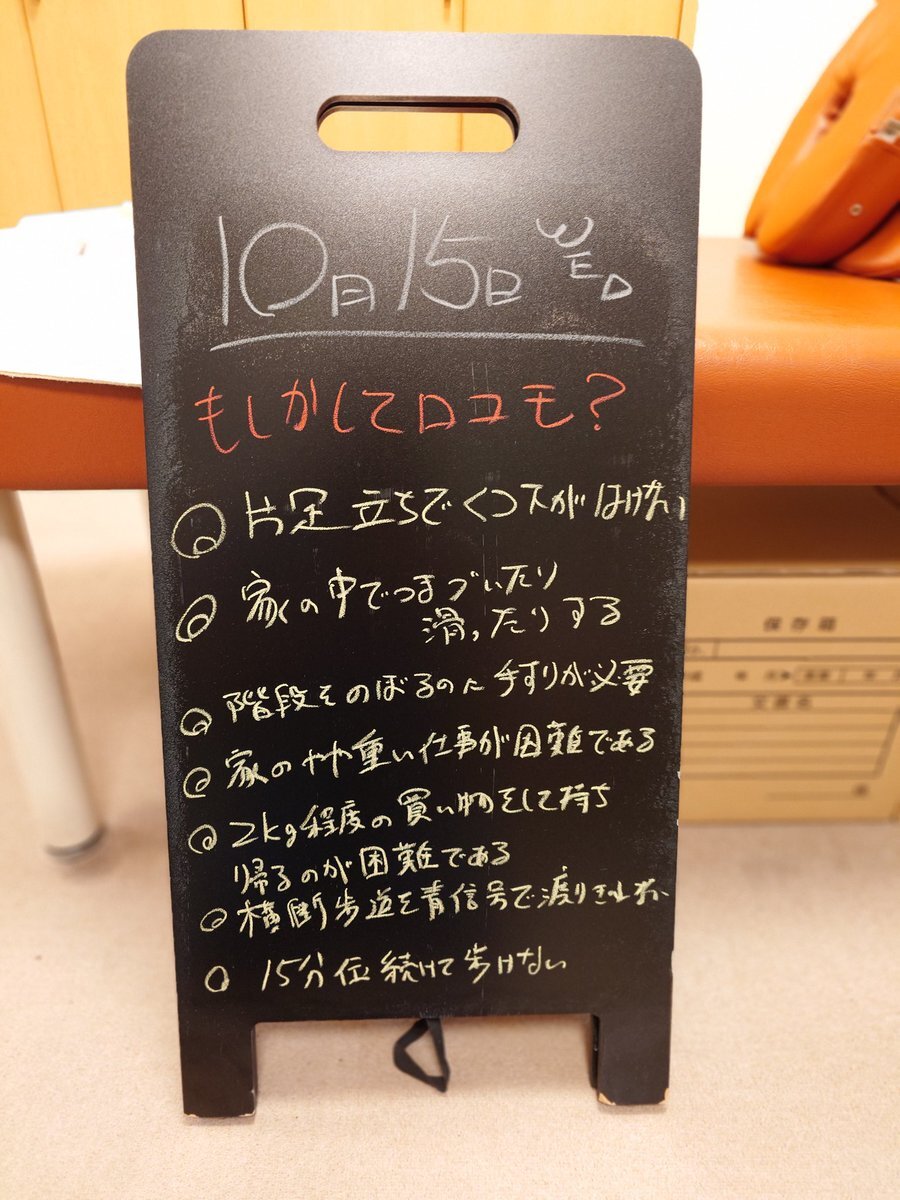 10月15日 WED
もしかしてロコモ?
片足立ちでくつ下がはけない
家の中でつまづいたり
滑ったりする
階段をのぼるのに手すりが必要
家のやや重い仕事が困難である
2kg程度の買い物をして持ち
帰るのが困難である
横断歩道を青信号で渡りきれない
15分位続けて歩けない
保存箱